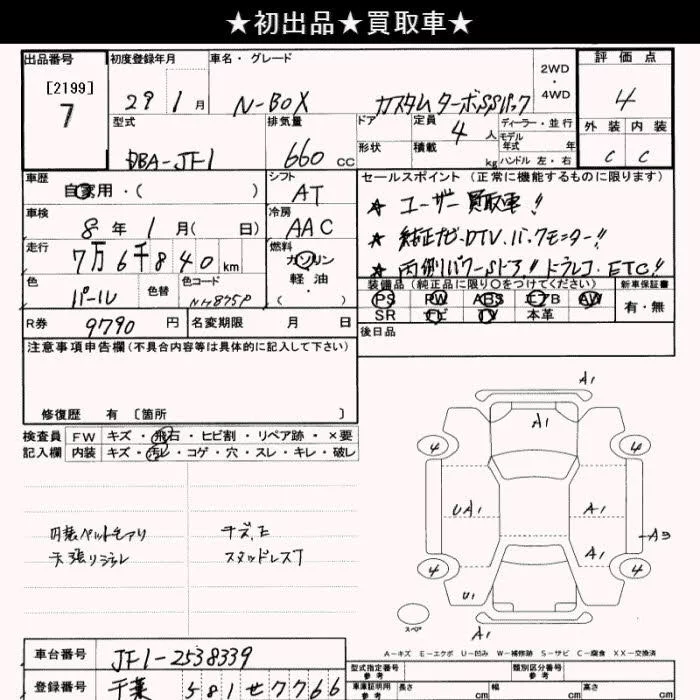 ★初出品★買取車★
出品番号 初度登録年月 車名・グレード 2WD・4WD 評価点
[2199]
7
29年1月 N-BOX カスタムターボSSパック 4
型式 排気量 ドア 定員 4人 ディーラー・並行 外装 内装
DBA-JF1 660cc 形状 積載 kg モデル年式 年 ハンドル 左・右 C C
車歴 自家用・( ) シフト AT
セールスポイント(正常に機能するものに限ります)
★ ユーザー買取車!!
車検 8年1月( 日) 冷房 AAC
★ 純正ナビ・DTV.バックモニター!!
走行 7万6千840km 燃料 ガソリン 軽油・( )
★ 両側パワーSドア!! ドラレコ.ETC!!
色 パール 色替 色コード NH875P
装備品(純正品に限り○をつけてください) 新車保証書
PS PW ABS エアB AW 有・無
SR ナビ TV 本革
R券 9790円 名変期限 月 日
後日品
注意事項申告欄(不具合内容等は具体的に記入して下さい)
修復歴 有〔箇所 〕
検査員 FW キズ・飛石・ヒビ割・リペア跡・×要
記入欄 内装 キズ・汚レ・コゲ・穴・スレ・キレ・破レ
内装ペット毛アリ
天張りシミレ
キズ.E
スタッドレスT
A1
A1
4 4
UA1 A1 A3
A1
4 4
U1
A1
スペア
A-キズ E-エクボ U-凹み W-補修跡 S-サビ C-腐食 XX-交換済
車台番号 JF1-2538339
型式指定番号 参考 類別区分番号 参考
登録番号 千葉 581せ7766
車庫証明用 参考 長さ cm 幅 cm 高さ cm